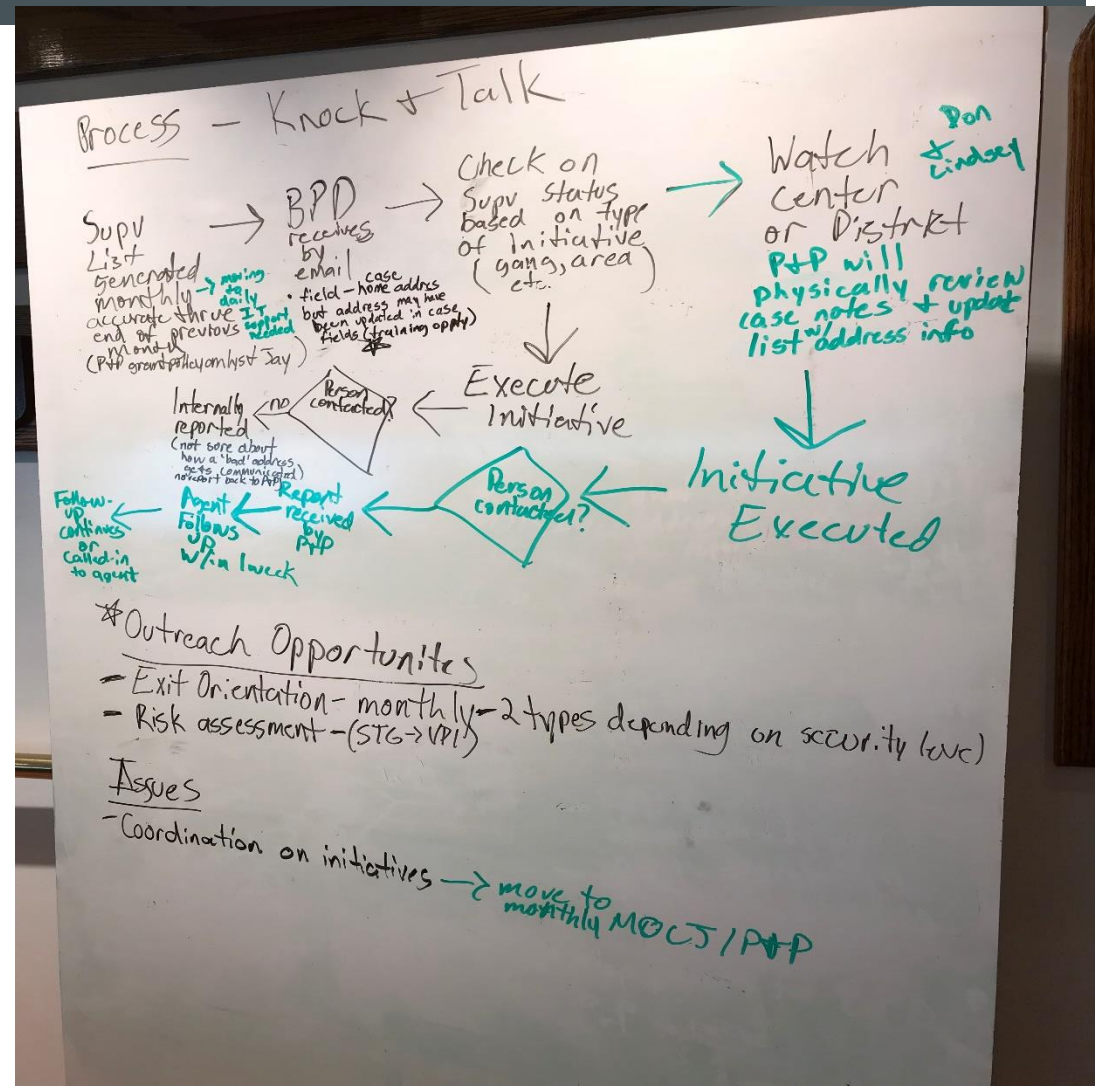 Process - Knock + Talk
Supv
List
Generated
monthly → moving
to
daily
accurate thrue IT
support
needed
end of previous
month
(P+P grant policy analyst Jay)
BPD
receives
by
email
• case
field - home addres
but address may have
been updated in case
fields (training oppty)
Check on
Supv Status
based on type
of Initiative
(gang, area)
etc.
Watch
center
or District
Don
&
Lindsey
P+P will
physically review
case notes + update
list w/ address info
Execute
Initiative
Person
contacted?
no
Internally
reported
(not sore about
how a 'bad' address
gets communicated)
no report back to P+P
Initiative
Executed
Person
contacted?
Report
received
by
P+P
Agent
Follows
up
w/in 1 week
Follow-
up
continues
or
Called-in
to agent
*Outreach Opportunites
- Exit Orientation - monthly - 2 types depending on security level)
- Risk assessment - (STG → VPI)
Issues
- Coordination on initiatives → move to
monthly MOCJ / P+P